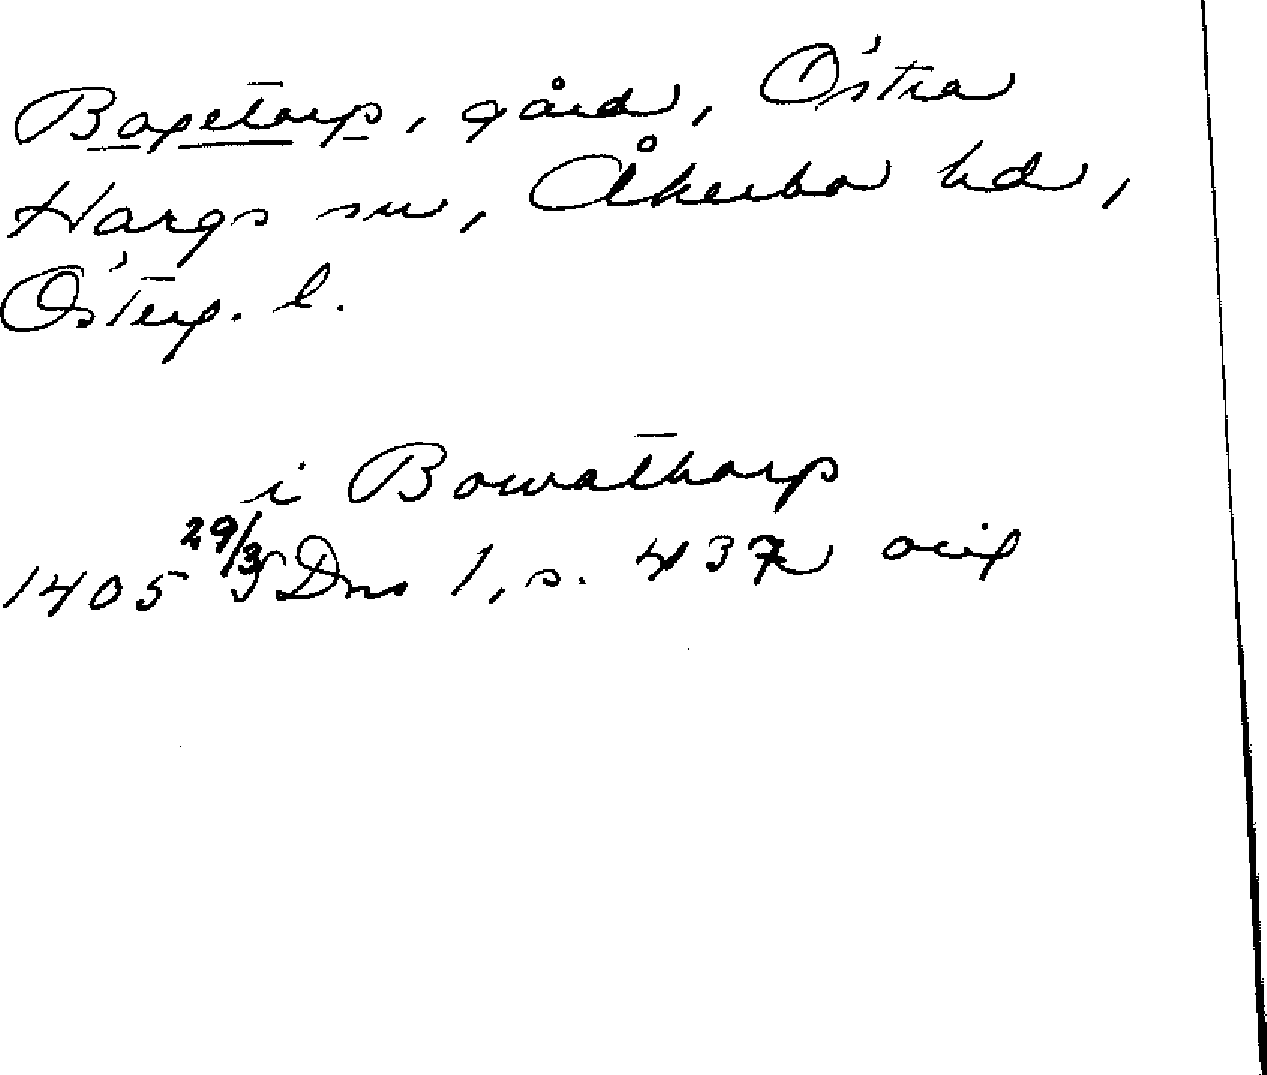 Bogetorp, gård, Östra
Hargs sn, Åkerbo hd,
Österg. l.
i Bowathorp
1405 29/3 Dns 1, s. 437 orig